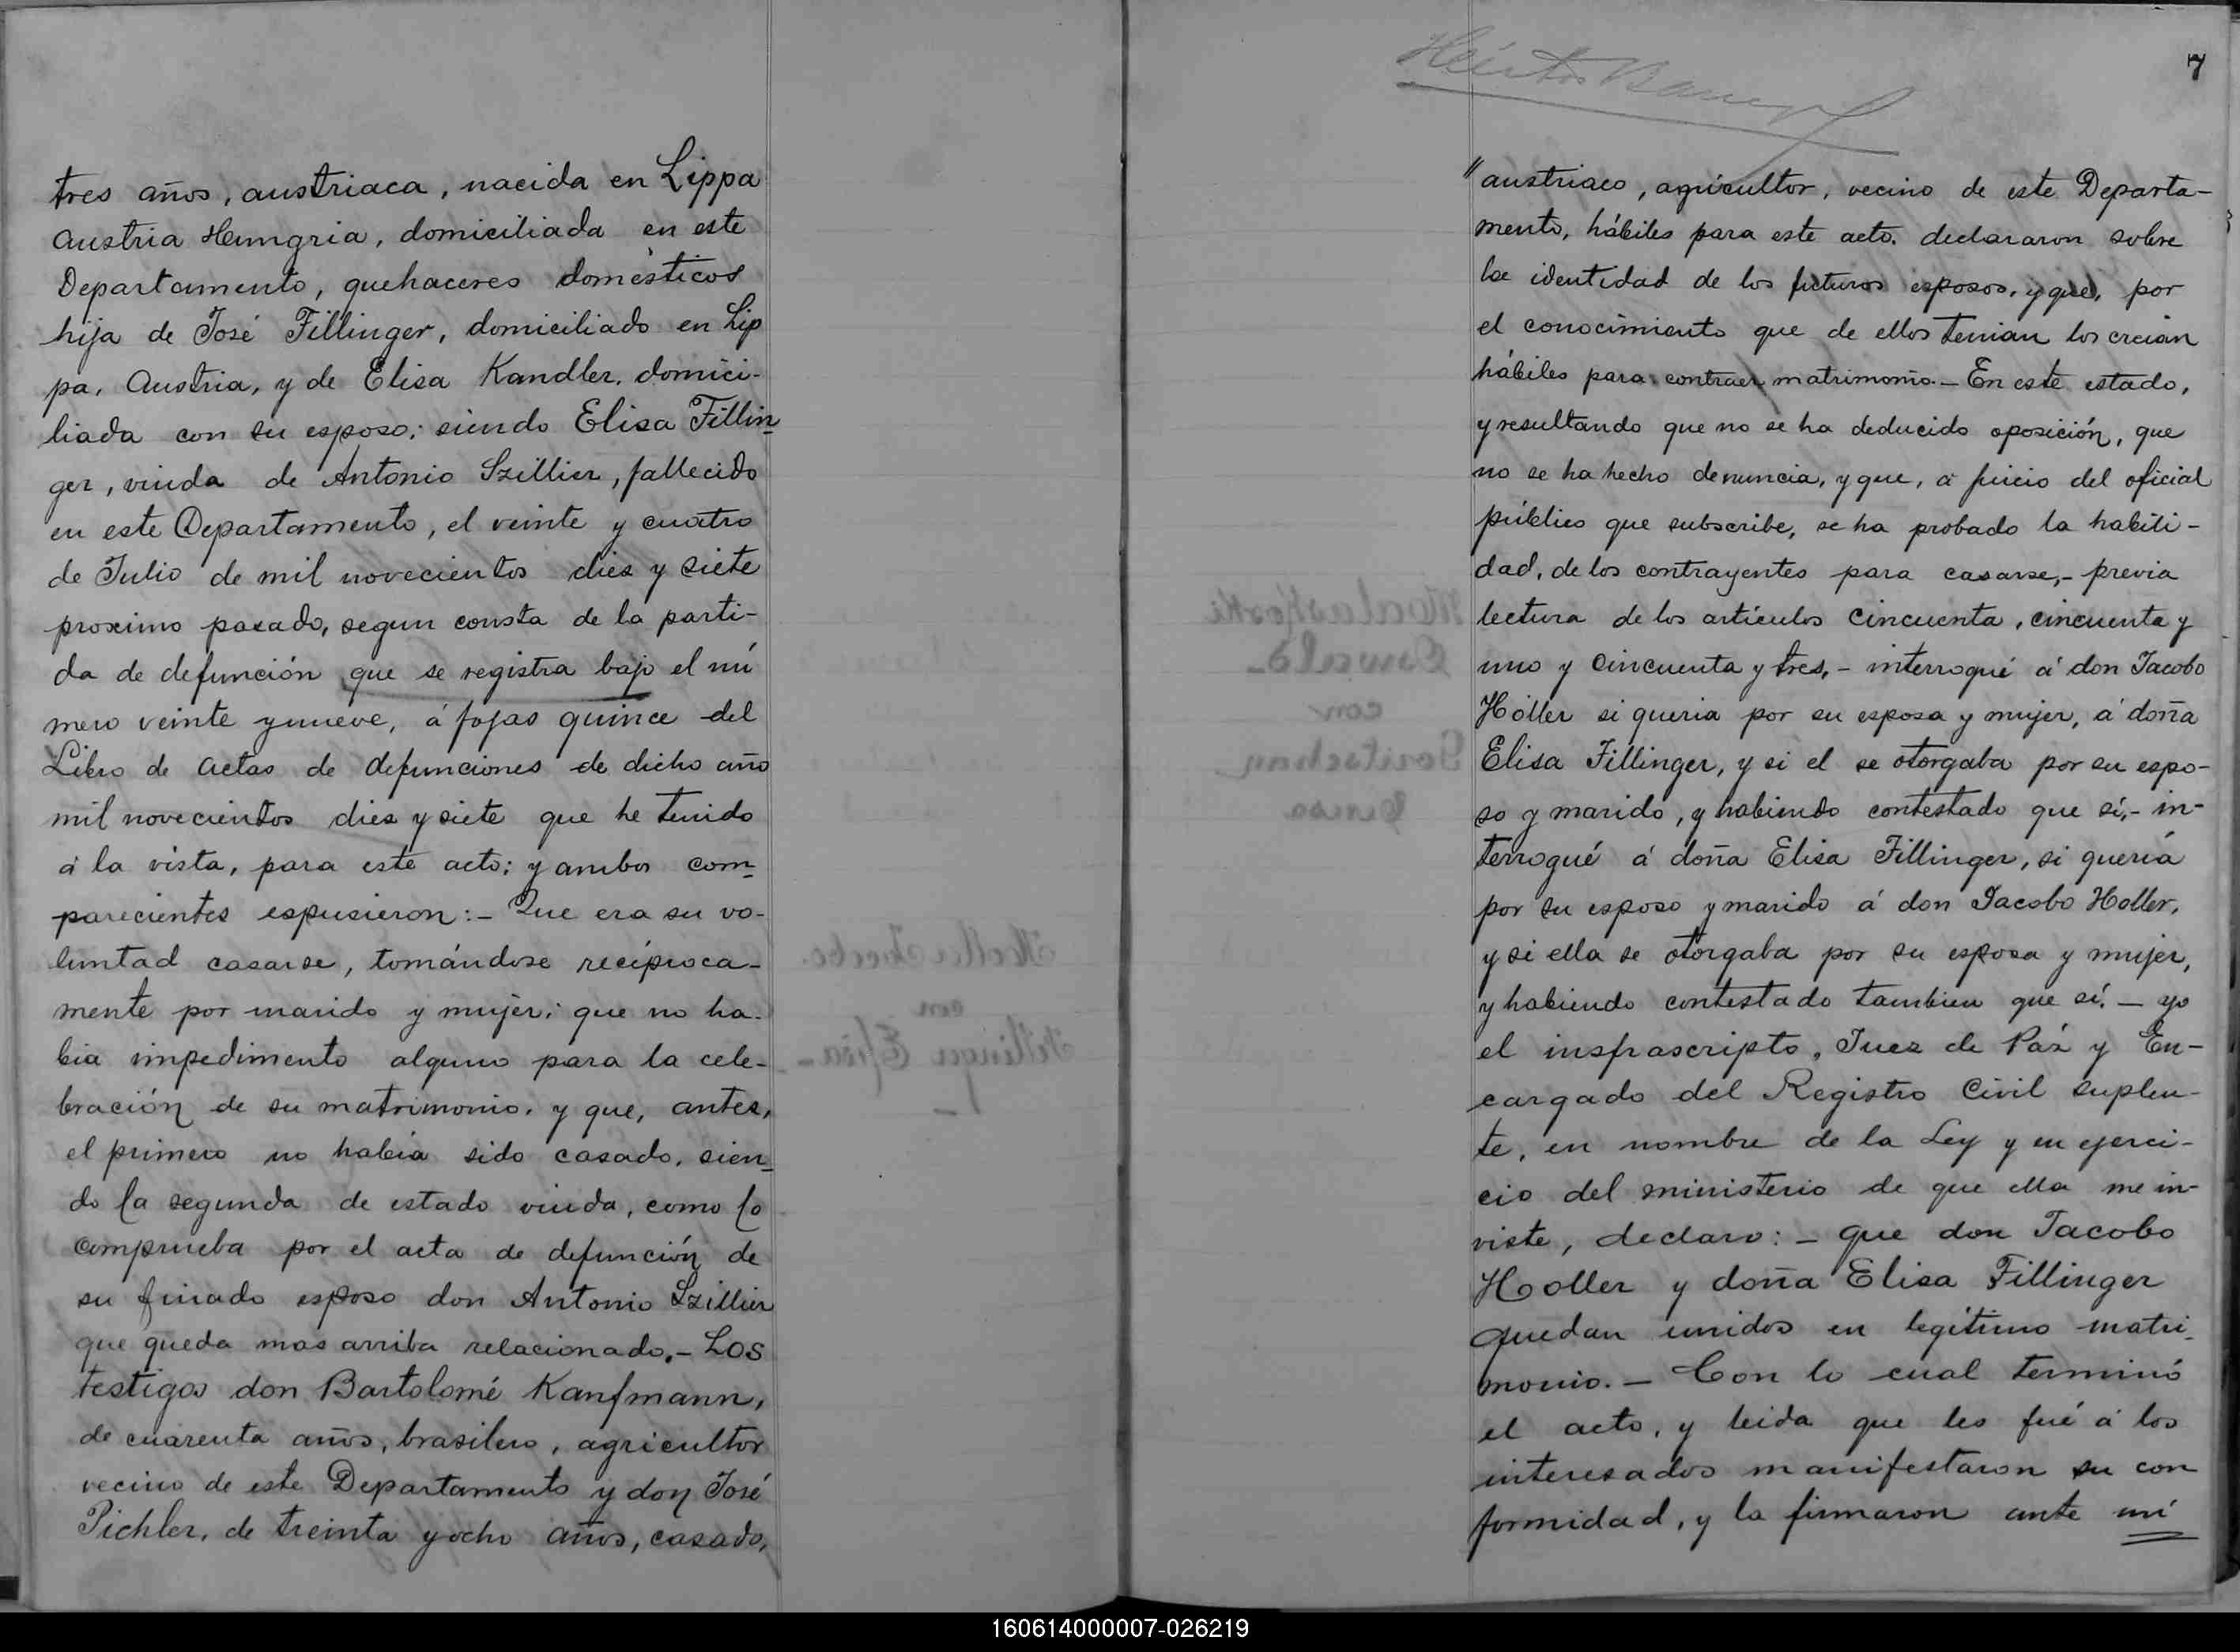 tres años, austriaca, nacida en Lippa
Austria Hungria, domiciliada en este
Departamento, quehaceres domésticos
hija de José Fillinger, domiciliado en Lip
pa, Austria, y de Elisa Kandler, domici-
liada con su esposo; siendo Elisa Fillin-
ger, viuda de Antonio Szillier, fallecido
en este Departamento, el veinte y cuatro
de Julio de mil novecientos dies y siete
proximo pasado, segun consta de la parti-
da de defunción que se registra bajo el nú
mero veinte y nueve, á fojas quince del
Libro de actas de defunciones de dicho año
mil novecientos dies y siete que he tenido
á la vista, para este acto; y ambos com-
parecientes espusieron:- Que era su vo-
luntad casarse, tomándose recíproca-
mente por marido y mujer; que no ha-
bia impedimento alguno para la cele-
bración de su matrimonio, y que, antes,
el primero no habia sido casado, sien-
do la segunda de estado viuda, como lo
comprueba por el acta de defunción de
su finado esposo don Antonio Szillier
que queda mas arriba relacionado.- Los
testigos don Bartolomé Kanfmann,
de cuarenta años, brasilero, agricultor
vecino de este Departamento y don José
Pichler, de treinta y ocho años, casado,
7
"austriaco, agricultor, vecino de este Departa-
mento, hábiles para este acto. declararon sobre
la identidad de los futuros esposos, y que, por
el conocimiento que de ellos tenian los creian
hábiles para contraer matrimonio.- En este estado,
y resultando que no se ha deducido oposición, que
no se ha hecho denuncia, y que, á juicio del oficial
público que subscribe, se ha probado la habili-
dad, de los contrayentes para casarse,- previa
lectura de los artículos cincuenta, cincuenta y
uno y cincuenta y tres,- interroqué á don Jacobo
Holler si queria por su esposa y mujer, á doña
Elisa Fillinger, y si el se otorgaba por su espo-
so y marido, y habiendo contestado que sí,- in-
terrogué á doña Elisa Fillinger, si quería
por su esposo y marido á don Jacobo Holler,
y si ella se otorgaba por su esposa y mujer,
y habiendo contestado tambien que sí.- yo
el insfrascripto, Juez de Páz y En-
cargado del Registro Civil suplen-
te, en nombre de la Ley y en ejerci-
cio del ministerio de que ella me in-
viste, declaro:- que don Jacobo
Holler y doña Elisa Fillinger
quedan unidos en legítimo matri-
monio.- Con lo cual terminó
el acto, y leida que les fué á los
interesados manifestaron su con
formidad, y la firmaron ante mí
160614000007-026219